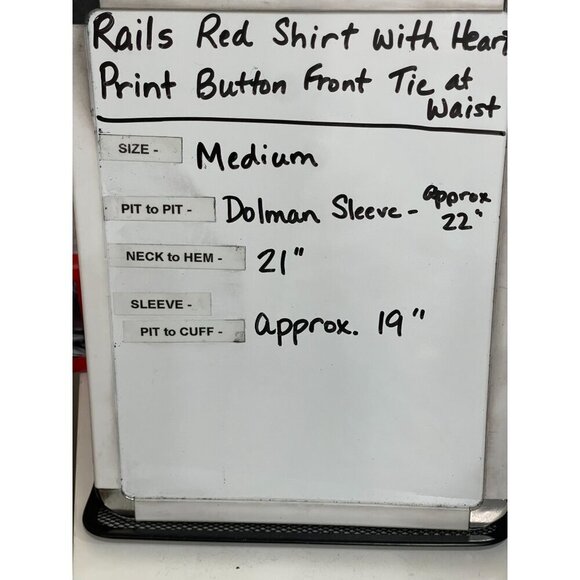 Rails Red Shirt with Heart
Print Button Front Tie at
Waist
SIZE - Medium
PIT to PIT - Dolman Sleeve - approx
22"
NECK to HEM - 21"
SLEEVE -
PIT to CUFF - approx. 19"